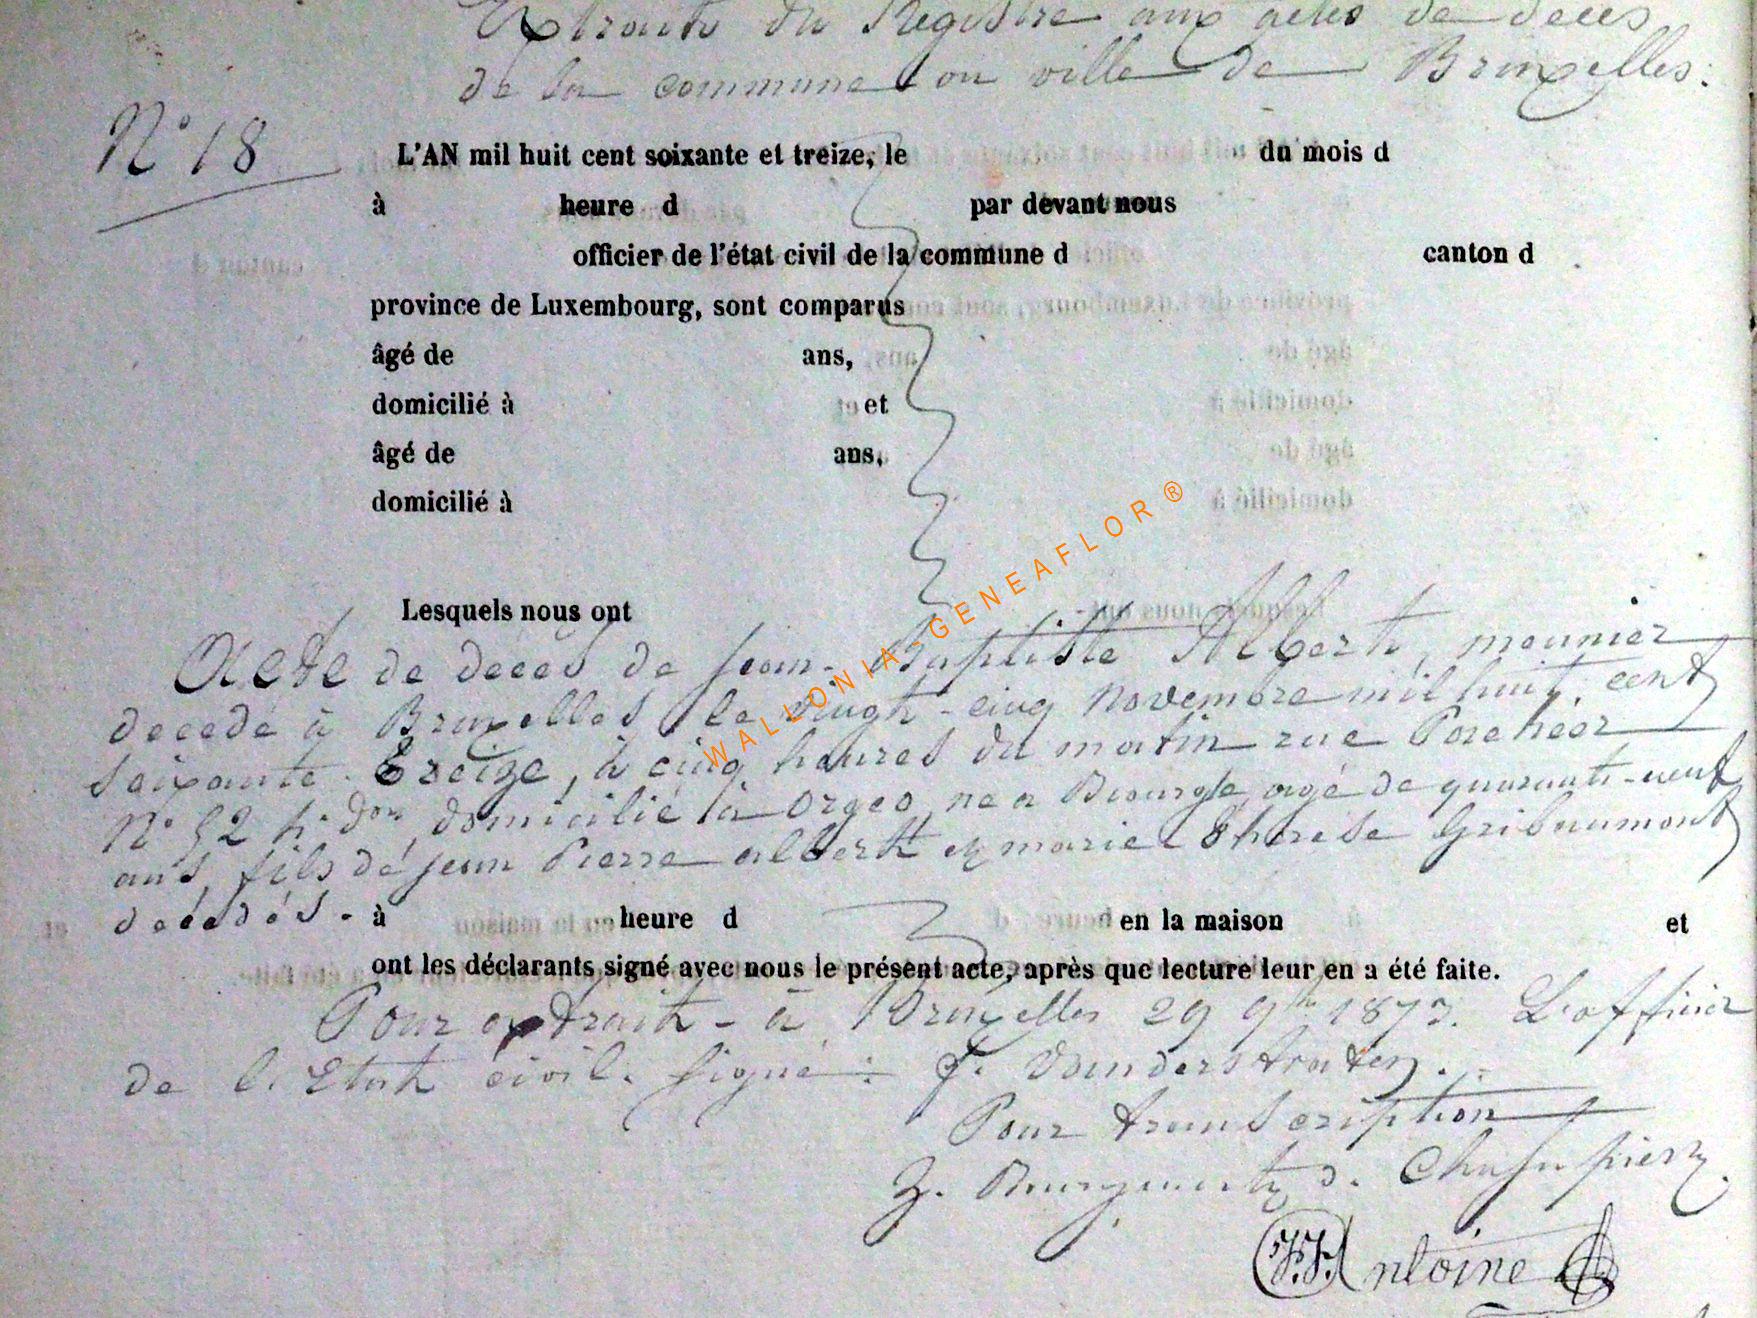 Extrait du Registre aux actes de décès
de la commune ou ville de Bruxelles.
N° 18
L'AN mil huit cent soixante et treize, le du mois d
à heure d par devant nous
officier de l'état civil de la commune d canton d
province de Luxembourg, sont comparus
âgé de ans,
domicilié à et
âgé de ans,
domicilié à
Lesquels nous ont
Acte de décès de jean-Baptiste Albert, meunier
décédé à Bruxelles le vingt-cinq novembre mil huit cent
soixante treize, à cinq heures du matin rue
N° 52 don, domicilié à Orgeo, né a Biourge, agé de quarante-neuf
ans, fils de jean Pierre albert et marie Thérèse Gribaumont
décédés. à heure d en la maison et
ont les déclarants signé avec nous le présent acte, après que lecture leur en a été faite.
Pour extrait - à Bruxelles 29 9bre 1873. L'officier
de l'Etat civil. signé: J. Vanderstraten.
Pour transcription
WALLONIA-GENEAFLOR®
J.J. Antoine